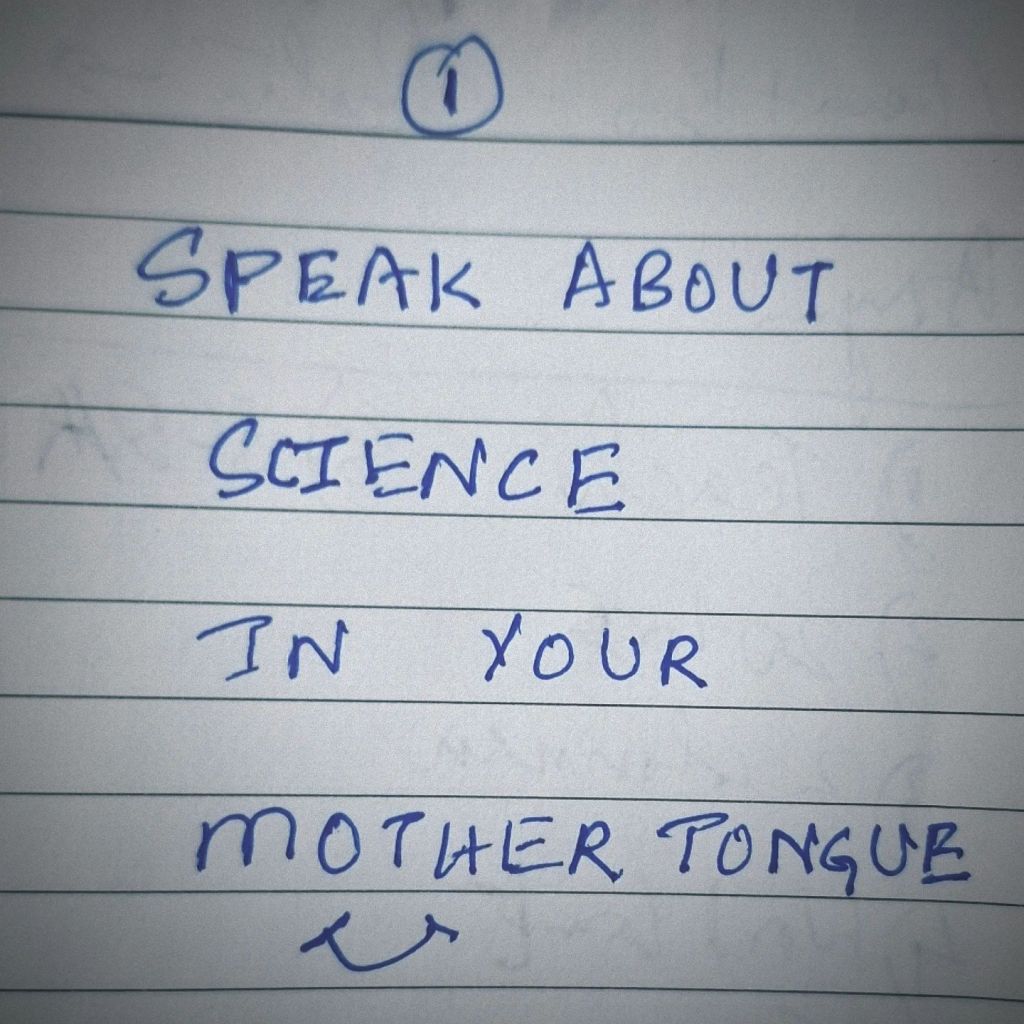 1
SPEAK ABOUT
SCIENCE
IN YOUR
MOTHER TONGUE